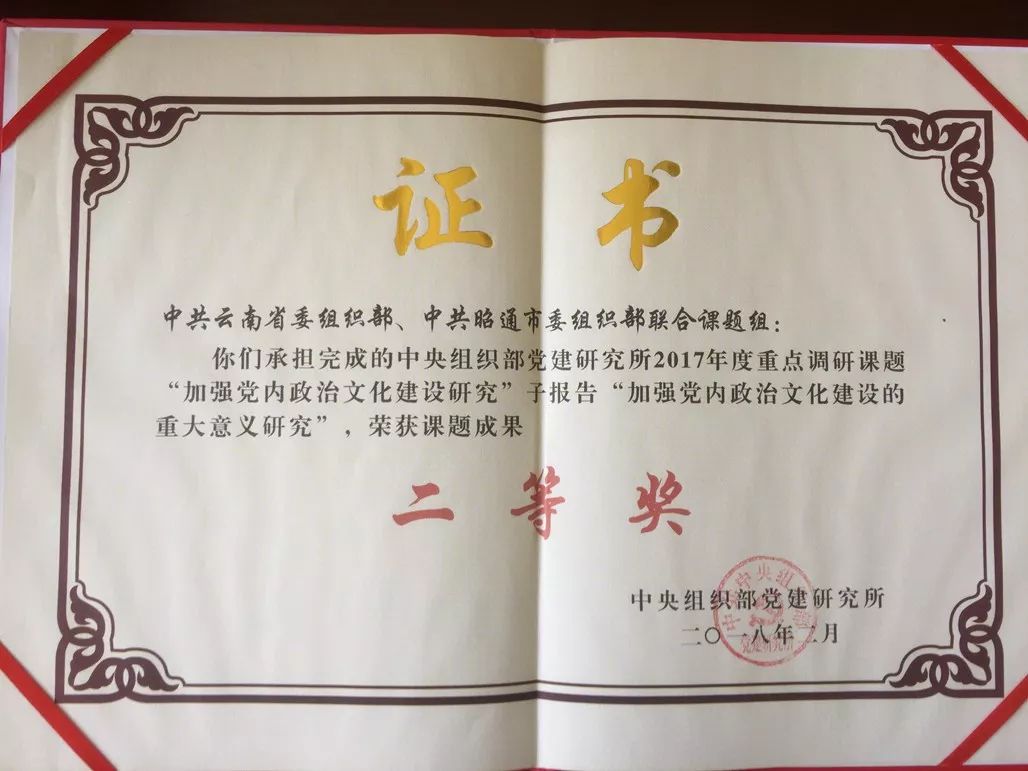 证书
中共云南省委组织部、中共昭通市委组织部联合课题组：
你们承担完成的中央组织部党建研究所2017年度重点调研课题
“加强党内政治文化建设研究”子报告“加强党内政治文化建设的
重大意义研究”，荣获课题成果
二等奖
中央组织部党建研究所
二〇一八年二月
党建研究所